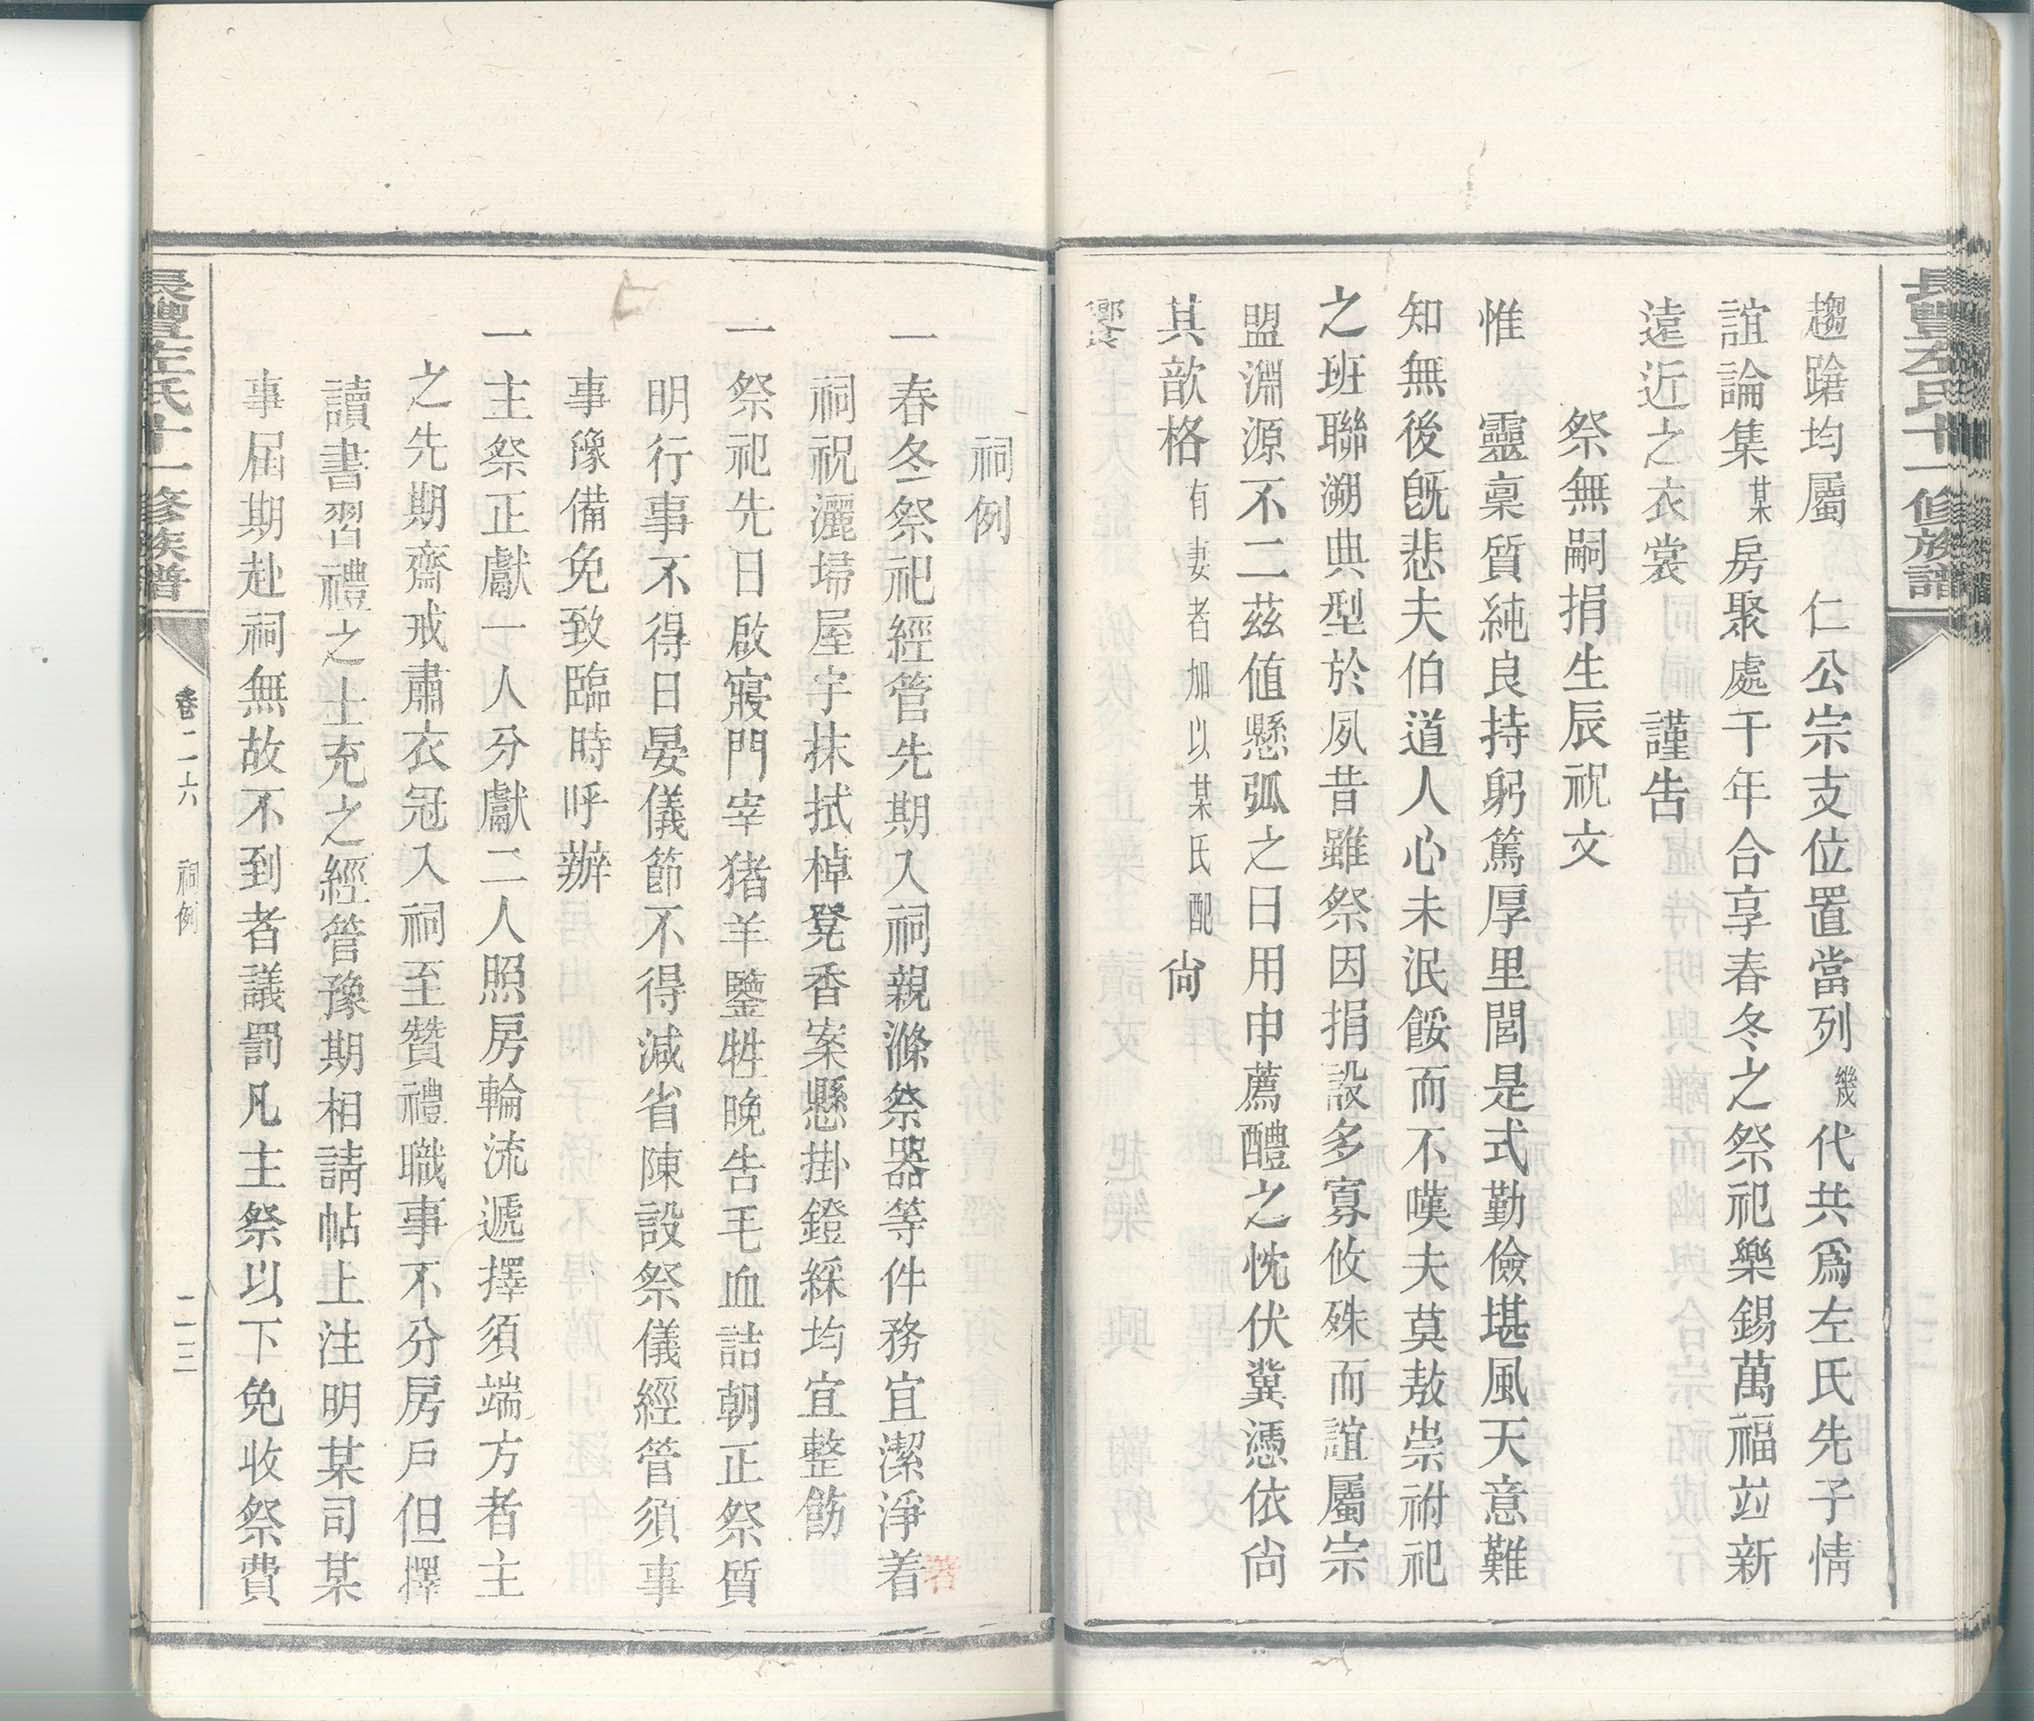 長豐左氏十一修族譜
趨蹌均屬　仁公宗支位置當列幾代共爲左氏先子情
誼論集某房聚處千年合享春冬之祭祀樂錫萬福竝新
遠近之衣裳　　謹吿
祭無嗣捐生辰祝文
惟　靈稟質純良持躬篤厚里閭是式勤儉堪風天意難
知無後旣悲夫伯道人心未泯餒而不嘆夫莫敖崇祔祀
之班聯溯典型於夙昔雖祭因捐設多寡攸殊而誼屬宗
盟淵源不二茲值懸弧之日用申薦醴之忱伏冀憑依尙
其歆格有妻者加以某氏配尙
饗
祠例
一春冬祭祀經管先期入祠親滌祭器等件務宜潔淨着
祠祝灑埽屋宇抹拭棹凳香案懸掛鐙綵均宜整飭
一祭祀先日啟寢門宰猪羊鑒牲晚吿毛血詰朝正祭質
明行事不得日晏儀節不得減省陳設祭儀經管須事
事豫備免致臨時呼辦
一主祭正獻一人分獻二人照房輪流遞擇須端方者主
之先期齋戒肅衣冠入祠至贊禮職事不分房戶但擇
讀書習禮之士充之經管豫期相請帖上注明某司某
事屆期赴祠無故不到者議罰凡主祭以下免收祭費
長豐左氏十一修族譜
卷二六　祠例
二三